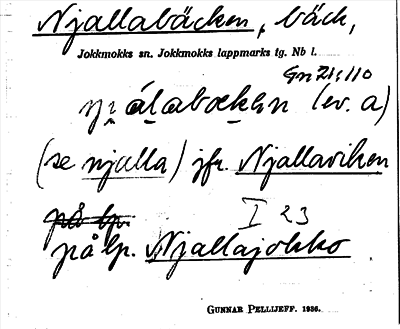 Njallabäcken, bäck,
Jokkmokks sn. Jokkmokks lappmarks tg. Nb l.
Gn 21,110
(ev. a)
(se njalla) jfr. Njallaviken
på lp. I 23
på lp. Njallajokko
GUNNAR PELLIJEFF. 1956.